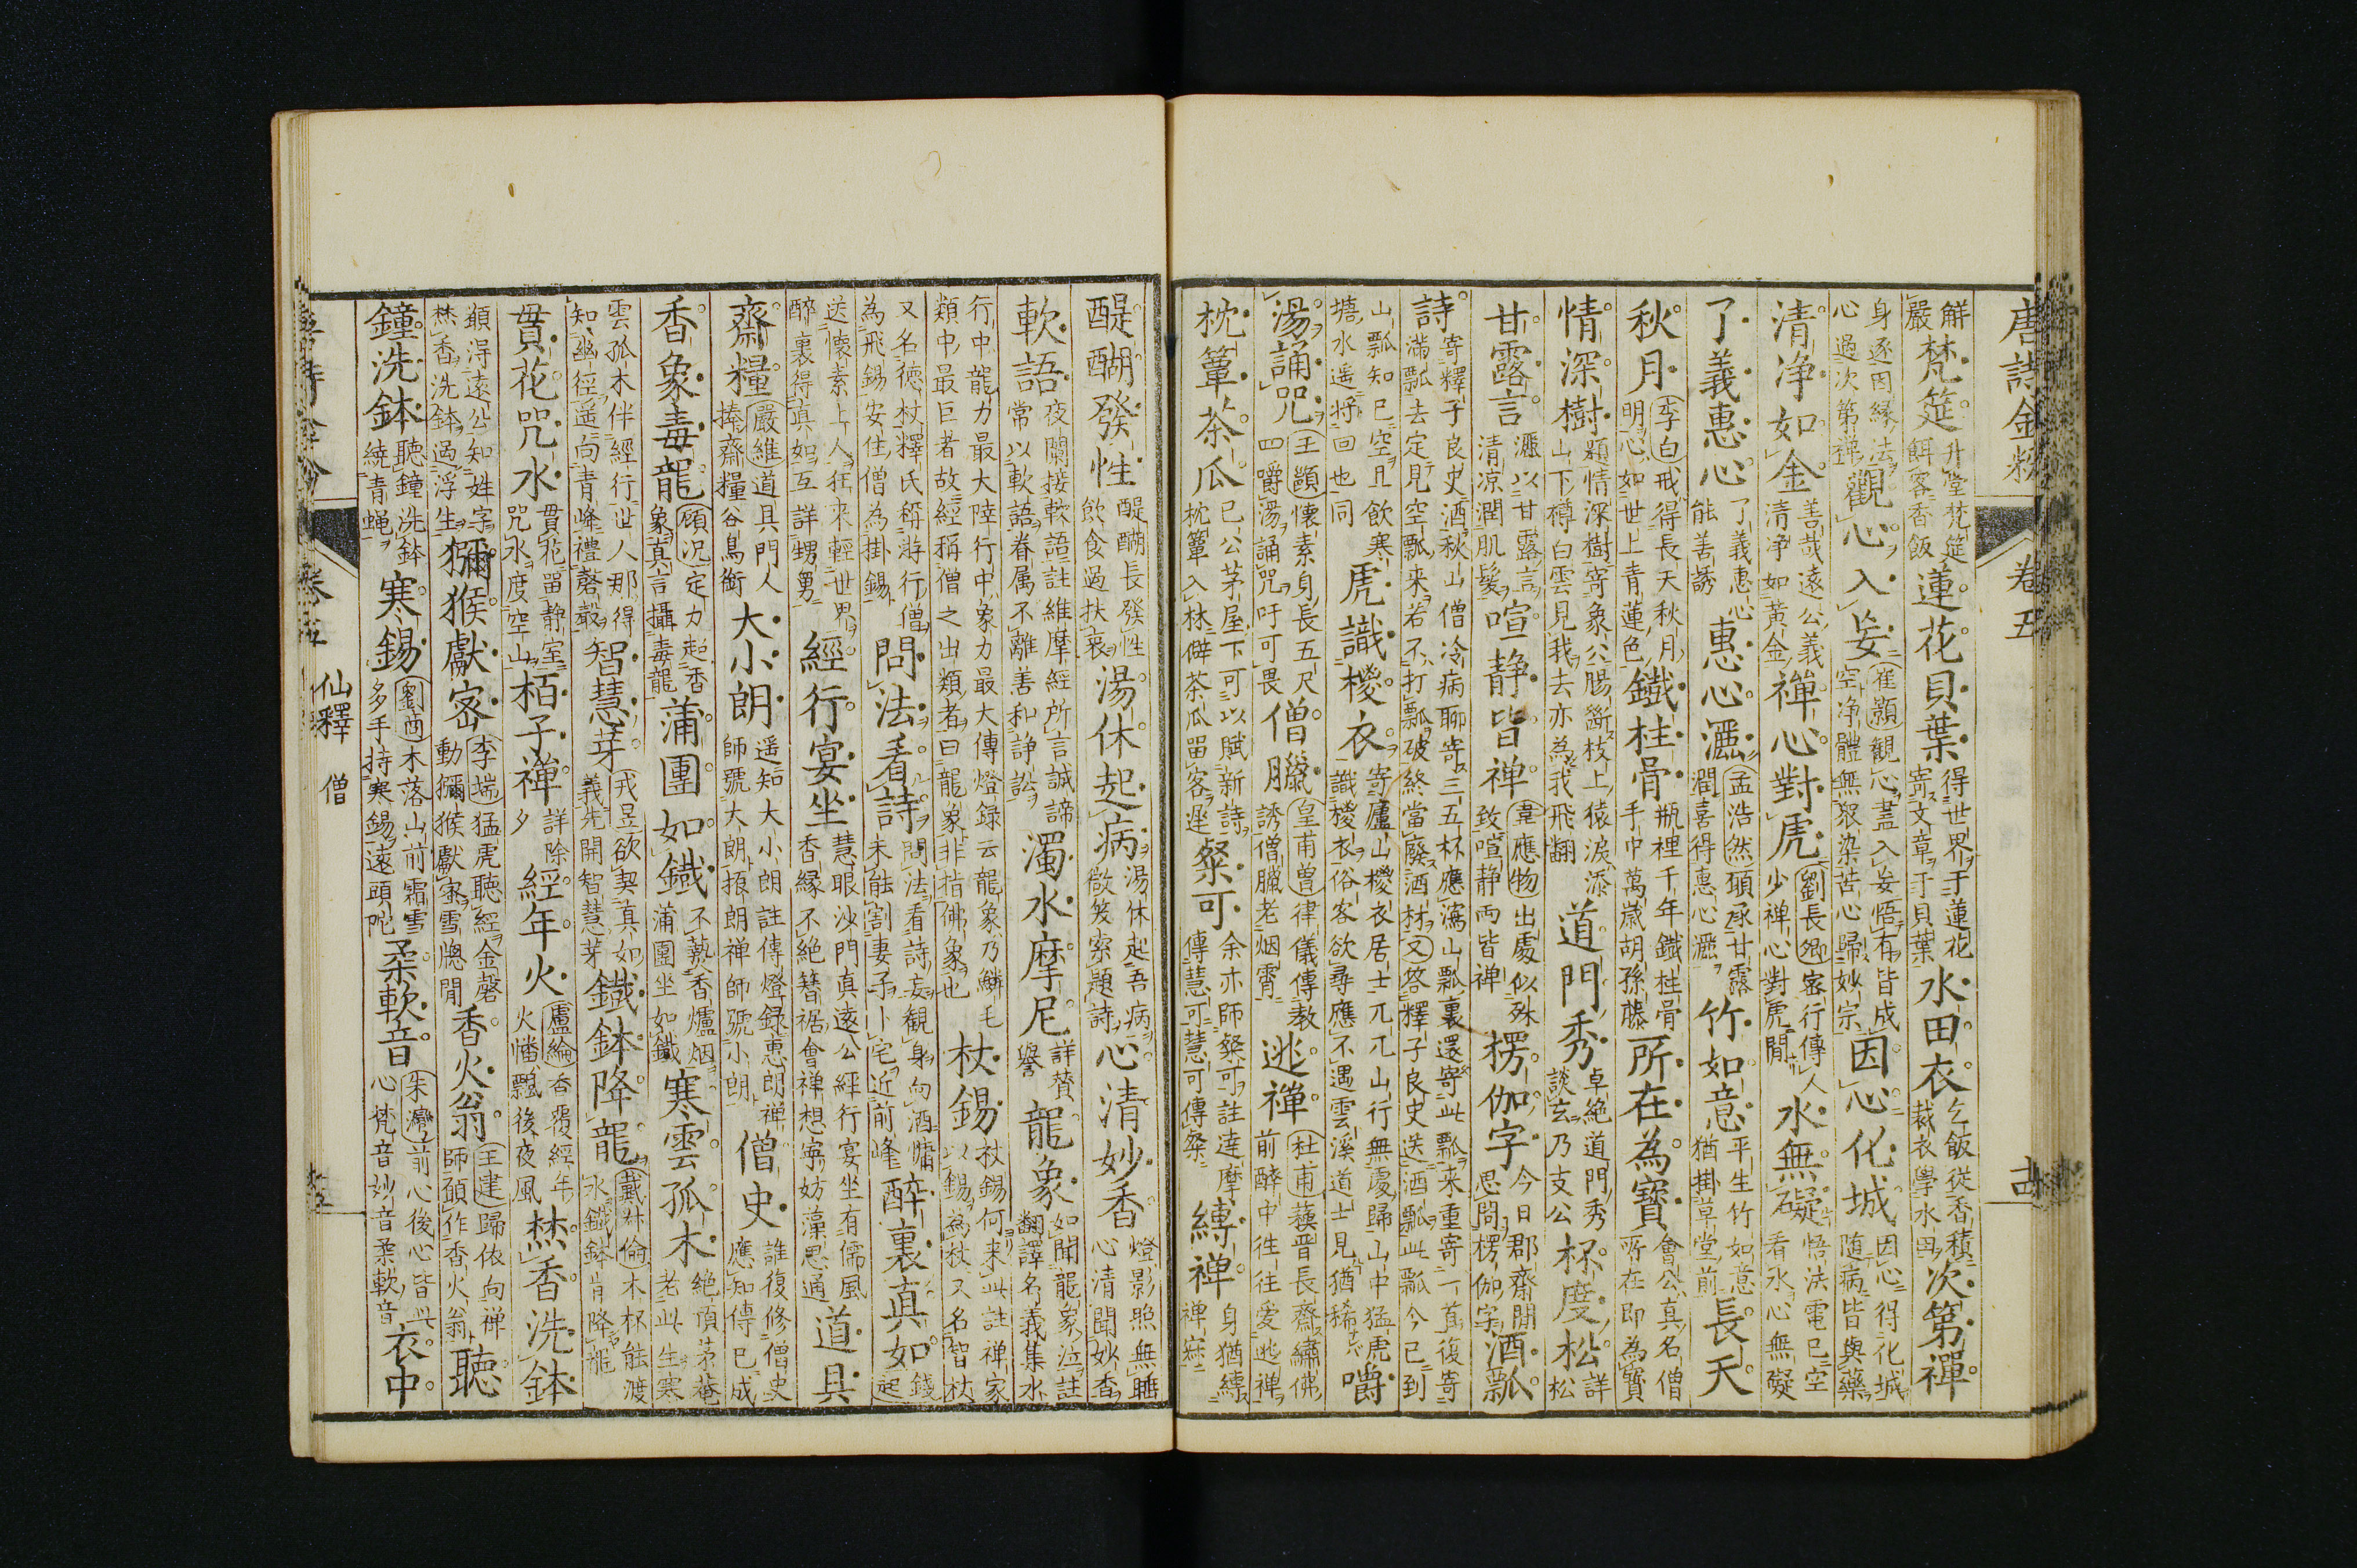 唐詩金粉 卷五 十四
解嚴 梵筵 升堂梵筵餌客香飯 蓮花貝葉 得世界于蓮花寄文章于貝葉 水田衣 乞飯從香積裁衣學水田 次第禪
身逐因縁法心過次第禅 觀心入妄 崔顥 觀心盡入妄悟有皆成空净體無衆染苦心歸妙宗 因心化城 因心得化城随病皆與藥
清净如金 善哉遠公義清净如黄金 禪心對虎 劉長卿 密行傳人少禅心對虎閒 水無礙 悟法電已空看水心無礙
了義惠心 了義惠心能善誘 惠心灑 孟浩然 頭承甘露潤喜得惠心灑 竹如意 平生竹如意猶掛草堂前 長天
秋月 李白 戒得長天秋月明心如世上青蓮色 鐵柱骨 瓶裡千年鐵柱骨手中萬歳胡孫藤 所在為寶 會公真名僧所在即為寶
情深樹 題情深樹寄象公腸斷枝上猿淚添山下樽白雲見我去亦為我飛翻 道門秀 卓絶道門秀談玄乃支公 杯度松 詳松
甘露言 灑以甘露言清凉潤肌髮 喧静皆禅 韋應物 出處似殊致喧静両皆禅 楞伽字 今日郡齋閒思問楞伽字 酒瓢
詩 寄釋子良史酒秋山僧冷病聊寄三五杯應瀉山瓢裏還寄此瓢来重寄一首復寄満瓢去定見空瓢来若不打瓢破終當廢酒材又答釋子良史送酒瓢此瓢今已到
山瓢知已空且飲寒塘水遥将回也同 虎識櫻衣 寄廬山櫻衣居士兀兀山行無處歸山中猛虎識櫻衣俗客欲尋應不遇雲溪道士見猶稀 嚼
湯誦咒 王顗 懷素身長五尺四嚼湯誦咒吁可畏 僧臘 皇甫曾 律儀傳教誘僧臘老烟霄 逃禅 杜甫 蘓晋長齋繡佛前醉中徃往愛逃禅
枕簟茶瓜 已公茅屋下可以賦新詩枕簟入林僻茶瓜留客遲 粲可 余亦師粲可註達摩傳慧可慧可傳粲 縛禅 身猶縛禅寂
醍醐發性 醍醐長發性飲食過扶衰 湯休起病 湯休起吾病微笑索題詩 心清妙香 燈影照無睡心清聞妙香
軟語 夜闌接軟語註維摩經所言誠諦常以軟語眷属不離善和諍訟 濁水摩尼 詳賛譽 龍象 如聞龍象泣註翻譯名義集水
行中龍力最大陸行中象力最大傳燈録云龍象乃鱗毛類中最巨者故經稱僧之出類者曰龍象非指佛象也 杖錫 杖錫何来此註禅家以錫為杖又名智杖
又名徳杖釋氏稱游行僧為飛錫安住僧為掛錫 問法看詩 問法看詩妄觀身向酒慵未能割妻子卜宅近前峰 醉裏真如 錢起
送懐素上人狂来輕世界醉裏得真如互詳甥舅 經行宴坐 慧眼沙門真遠公經行宴坐有儒風香縁不絶簪裾會禅想寧妨藻思通 道具
齋糧 嚴維 道具門人捧齋糧谷鳥銜 大小朗 遥知大小朗註傳燈録惠朗禅師號大朗振朗禅師號小朗 僧史 誰復修僧史應知傳已成
香象毒龍 顧况 定力超香象真言攝毒龍 蒲團如鐵 不爇香爐烟蒲團坐如鐵 寒雲孤木 絶頂茅菴老此生寒
雲孤木伴經行世人那得知幽徑遥向青峰禮磬聲 智慧芽 戎昱 欲契真如義先開智慧芽 鐵鉢降龍 戴叔倫 木杯能渡水鐵鉢肯降龍
貫花咒水 貫花留静室咒水度空山 栢子禅 詳除夕 經年火 盧綸 香覆經年火幡飄後夜風 焚香洗鉢
顓得遠公知姓字焚香洗鉢過浮生 獼猴獻密 李端 猛虎聴經金磬動獼猴獻蜜雪牕閒 香火翁 王建 歸依向禅師願作香火翁 聴
鐘洗鉢 聴鐘洗鉢繞青蝿 寒錫 劉商 木落山前霜雪多手持寒錫遠頭陀 柔軟音 朱灣 前心後心皆此心梵音妙音柔軟音 衣中
仙釋 僧